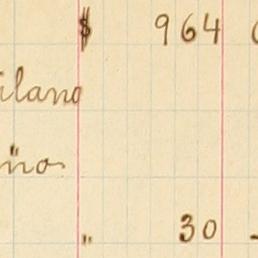 $ 964
ilano
ño
" 30